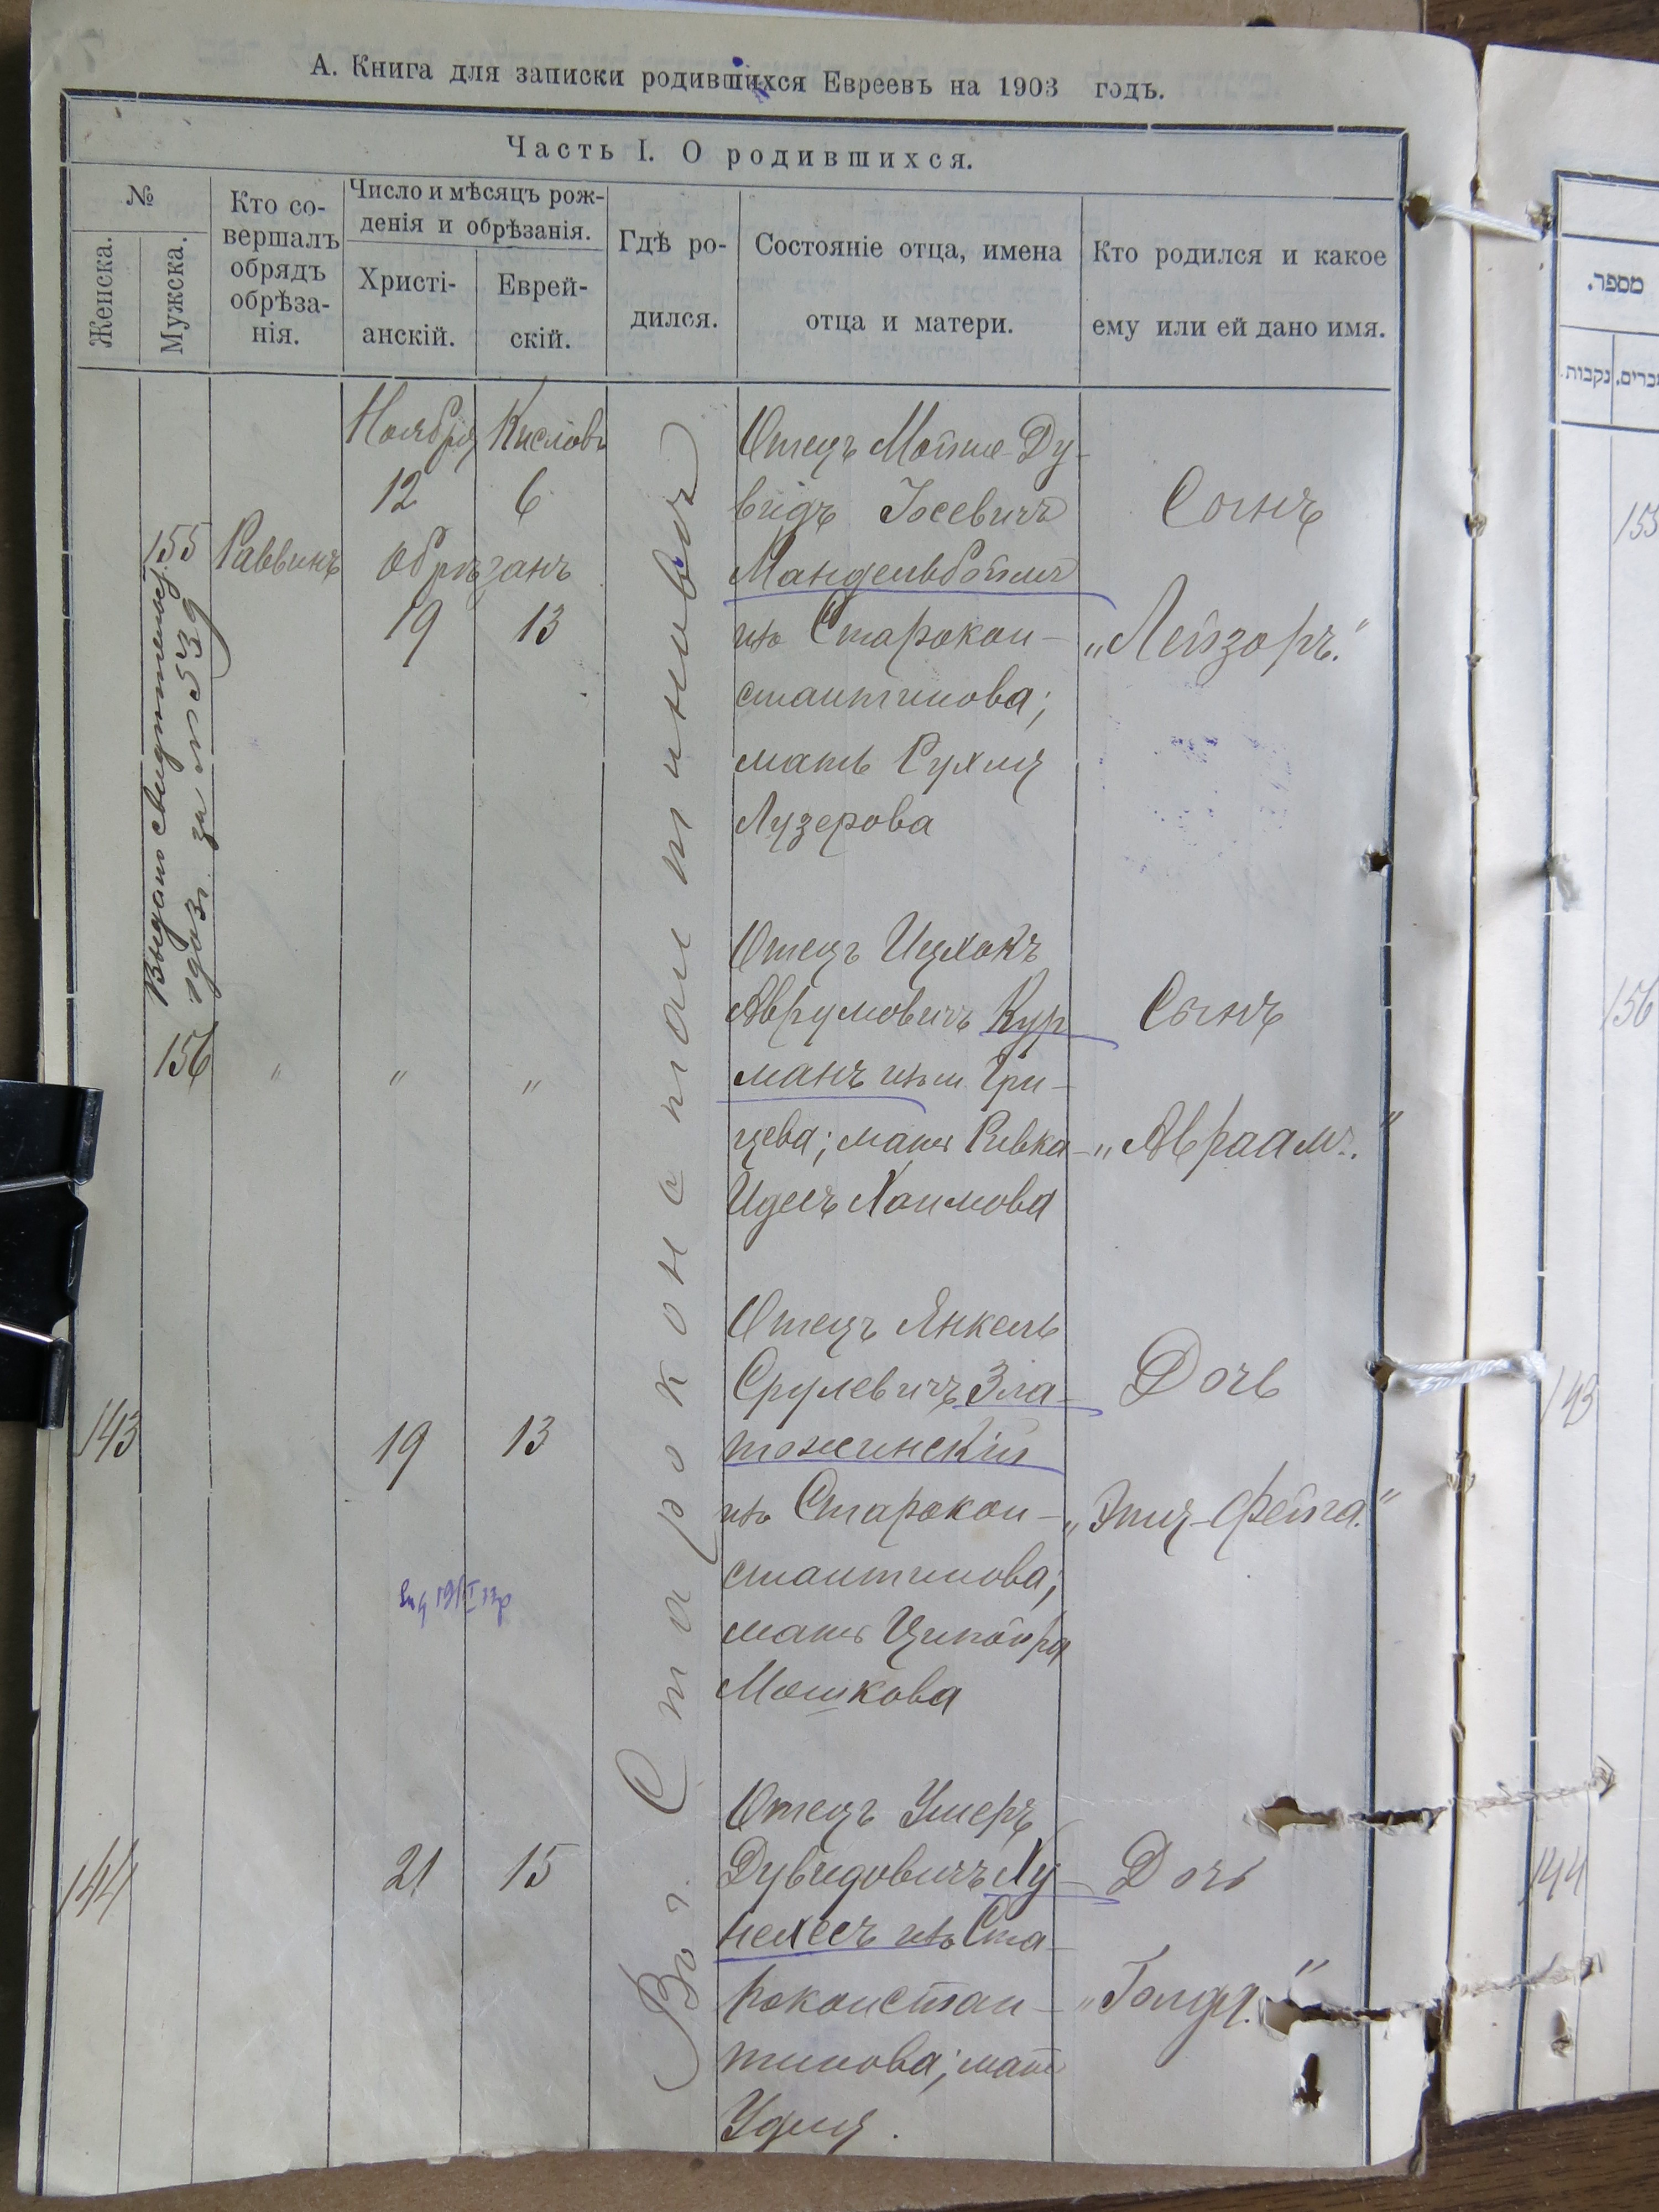 А. Книга для записки родившихся Евреевъ на 1903 годъ.
Часть I. О родившихся.
№
Женска.
Мужска.
Кто со-
вершалъ
обрядъ
обрѣза-
нія.
Число и мѣсяцъ рож-
денія и обрѣзанія.
Христі-
анскій.
Еврей-
скій.
Гдѣ ро-
дился.
Состояніе отца, имена
отца и матери.
Кто родился и какое
ему или ей дано имя.
Ноября Кислова
12 6
155 Раввинъ Обрѣзанъ
19 13
Выдано свидѣтельст.
1903 г. за № 539
Въ г. Староконстантиновѣ
Отецъ Мотие-Ду-
видъ Іосевичъ
Мандельбойм
изъ Старокон-
стантинова;
мать Рухля
Лузерова
Сынъ
„Лейзоръ."
156 " " "
Отецъ Ицхокъ
Аврумовичъ Кур
манъ изъ м. Гри-
цева; мать Ривка-
Идесъ Хаимова
Сынъ
„Авраам."
143 19 13
Отецъ Янкель
Срулевичъ Зла-
тожинскій
изъ Старокон-
стантинова;
мать Ципойра
Мошкова
Дочь
„Этя-Фейга."
144 21 15
Отецъ Ушеръ
Дувидовичъ Лу-
нехесъ изъ Ста-
роконстан-
тинова; мать
Удля.
Дочь
„Голда."
מספר.
זכרים.
נקבות.
155
156
143
144